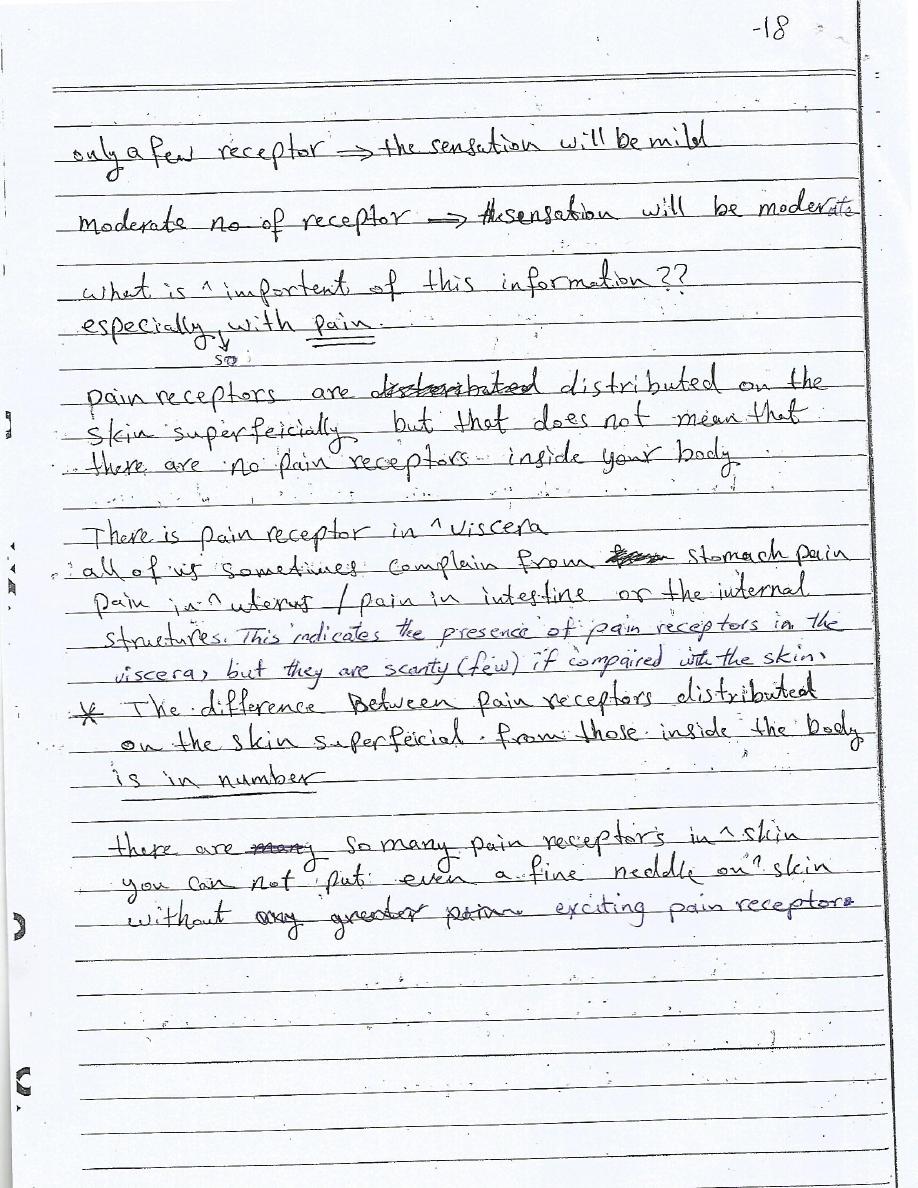 -18
only a few receptor → the sensation will be mild
moderate no of receptor → the sensation will be moderate
what is ^ importent of this information ??
especially, with pain.
so
pain receptors are distributed on the
skin superfeicially but that does not mean that
there are no pain receptors inside your body
There is pain receptor in ^ viscera
all of us sometimes complain from stomach pain
pain in ^ uterus / pain in intestine or the internal
structures. This indicates the presence of pain receptors in the
viscera, but they are scanty (few) if compaired with the skin.
* The difference Between pain receptors distributed
on the skin superfeicial from those inside the body
is in number
there are so many pain receptors in ^ skin
you can not put even a fine neddle on ^ skin
without any greater pain exciting pain receptors